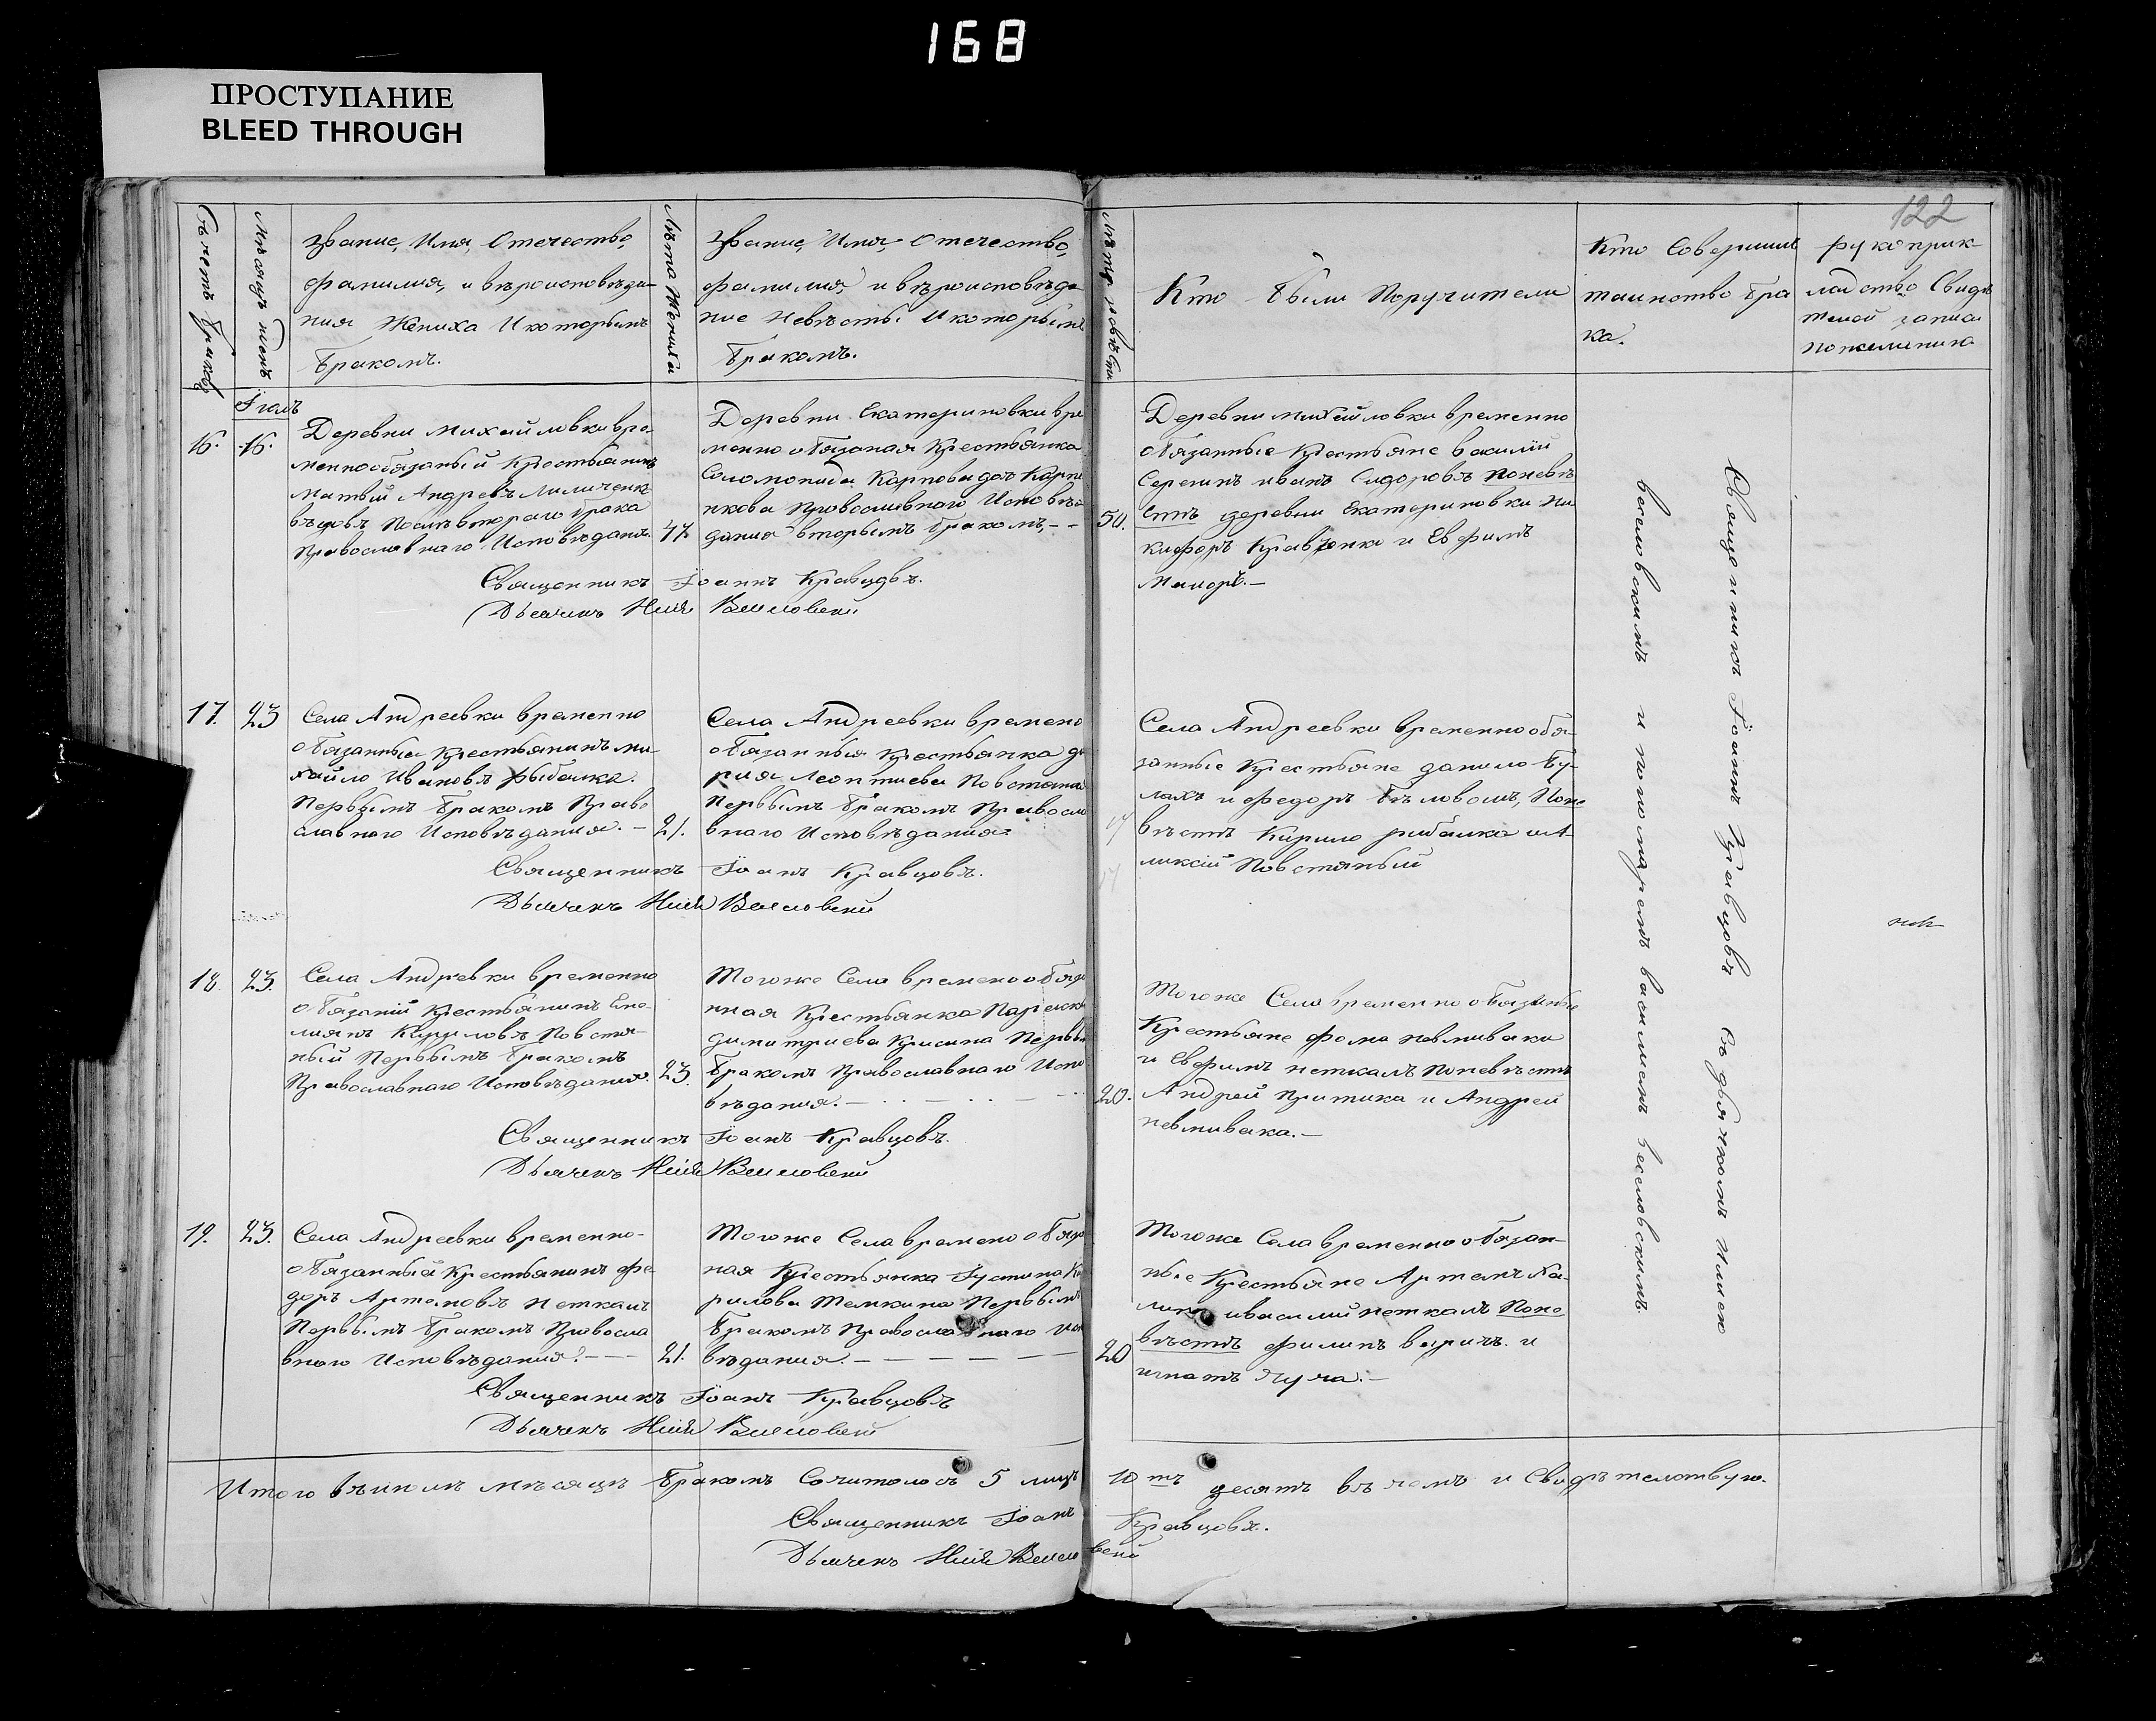 168
ПРОСТУПАНИЕ
BLEED THROUGH
122
Счетъ браковъ
Мѣсяцъ и день
Звание, Имя, Отечество,
фамилия, и вѣроисповѣда-
ния Жениха И которымъ
бракомъ.
Лѣта Жениха
Звание, Имя, Отечество,
фамилия, и вѣроисповѣда
ние Невѣсты И которымъ
бракомъ.
Лѣта невѣсты
Кто были Поручители
Кто Совершилъ
таинство бра
ка.
рукоприк
ладство Свидѣ
телей записи
по желанию
Іюль
16.
16.
Деревни Михайловки вре-
меннообязаный Крестьянинъ
Матвѣй Андреевъ
вдовъ Послѣ втораго брака
Православнаго Исповѣдания.
47
Деревни Екатериновки вре
менно обязаная Крестьянка
Соломонида Карпова дочь
Православнаго Исповѣ
дания вторымъ бракомъ, - -
50.
Деревни Михайловки временно
обязанные Крестьяне василій
Серегинъ иванъ Сидоровъ Поневѣ
стѣ деревни Екатериновки Ни
кифоръ Кравченко и Евфимъ
Мащоръ. -
Священникъ Іоаннъ Кравцовъ.
Дьячекъ Илія Веселовскій
17.
23
Села Андреевки временно
обязанные Крестьянинъ ми-
хайло Ивановъ рыбалка.
Первымъ бракомъ Право
славнаго Исповѣдания. -
21.
Села Андреевки времено
обязанныя Крестьянка да
рия Леонтиева Повстяная
Первымъ бракомъ Правосла
внаго Исповѣдания
17
Села Андреевки временно обя-
занные Крестьяне данило Бу-
лахъ и федоръ Бѣловолъ, Поне
вѣстѣ Кирило рибалка и А-
ликсій Повстяный
Священникъ Іоанъ Кравцовъ.
Дьячекъ Илія Веселовскій
18.
23.
Села Андреевки временно
обязаній Крестьянинъ Еме-
лиянъ Кириловъ Повстя-
ный Первымъ бракомъ
Православнаго Исповѣдания.
23.
Тогоже Села времено обяза
нная Крестьянка Параск
димитриева Крисина Первым
бракомъ Православнаго Испо
вѣдания. -
20.
Тогоже Села временно обязаные
Крестьяне фома невливаки
и Евфимъ неткалъ Поневѣстѣ
Андрей Притика и Андрей
невливака. -
Священникъ Іоанъ Кравцовъ.
Дьячекъ Илія Веселовскій
19.
23.
Села Андреевки временно-
обязанный Крестьянинъ фе-
доръ Артемовъ неткалъ
Первымъ бракомъ Правосла
внаго Исповѣдания. - -
21.
Тогоже Села времено обяза
ная Крестьянка Іустина Ки
рилова Темкина Первымъ
бракомъ Православнаго Испо
вѣдания. - - - -
20
Тогоже Села временно обязан-
ные Крестьяне Артемъ
и василий неткалъ Поне
вѣстѣ филипъ варичъ. и
игнатъ. -
Священникъ Іоанъ Кравцовъ
Дьячекъ Илія Веселовскій
Священникъ Іоаннъ Кравцовъ съ дьячкомъ Илиею
веселовскимъ и пономаремъ василиемъ веселовскимъ.
Итого въ июлѣ мѣсяцѣ бракомъ Сочиталось 5 лицъ 10тъ десять въ чемъ и Свидѣтелствую.
Священникъ Іоанъ Кравцовъ.
Дьячекъ Илія Веселовскій